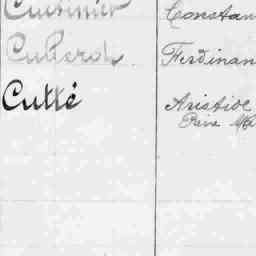 Cuisinier Constan
Cullerch Ferdinan
Cutté Aristide